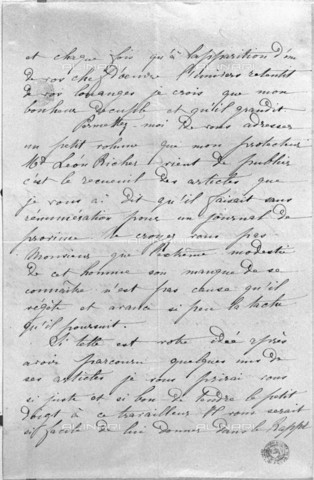 et chaque fois qu'à l'apparition d'un
de vos chefs d'œuvre l'univers retentit
de vos louanges je crois que mon
bonheur décuple et qu'il grandit
Permettez-moi de vous adresser
un petit volume que mon protecteur
Mr Léon Richer vient de publier
c'est le recueil des articles que
je vous ai dit qu'il faisait sans
rémunération pour un journal de
province ne croyez vous pas
Monsieur que l'extrême modestie
de cet homme son manque de se
connaître n'est pas cause qu'il
végète et avance si peu la tâche
qu'il poursuit.
Si telle est votre idée après
avoir parcouru quelques uns de
ses articles je vous prierai vous
si juste et si bon de tendre le petit
doigt à ce travailleur Il vous serait
si facile de lui donner dans le Rappel
ALINARI